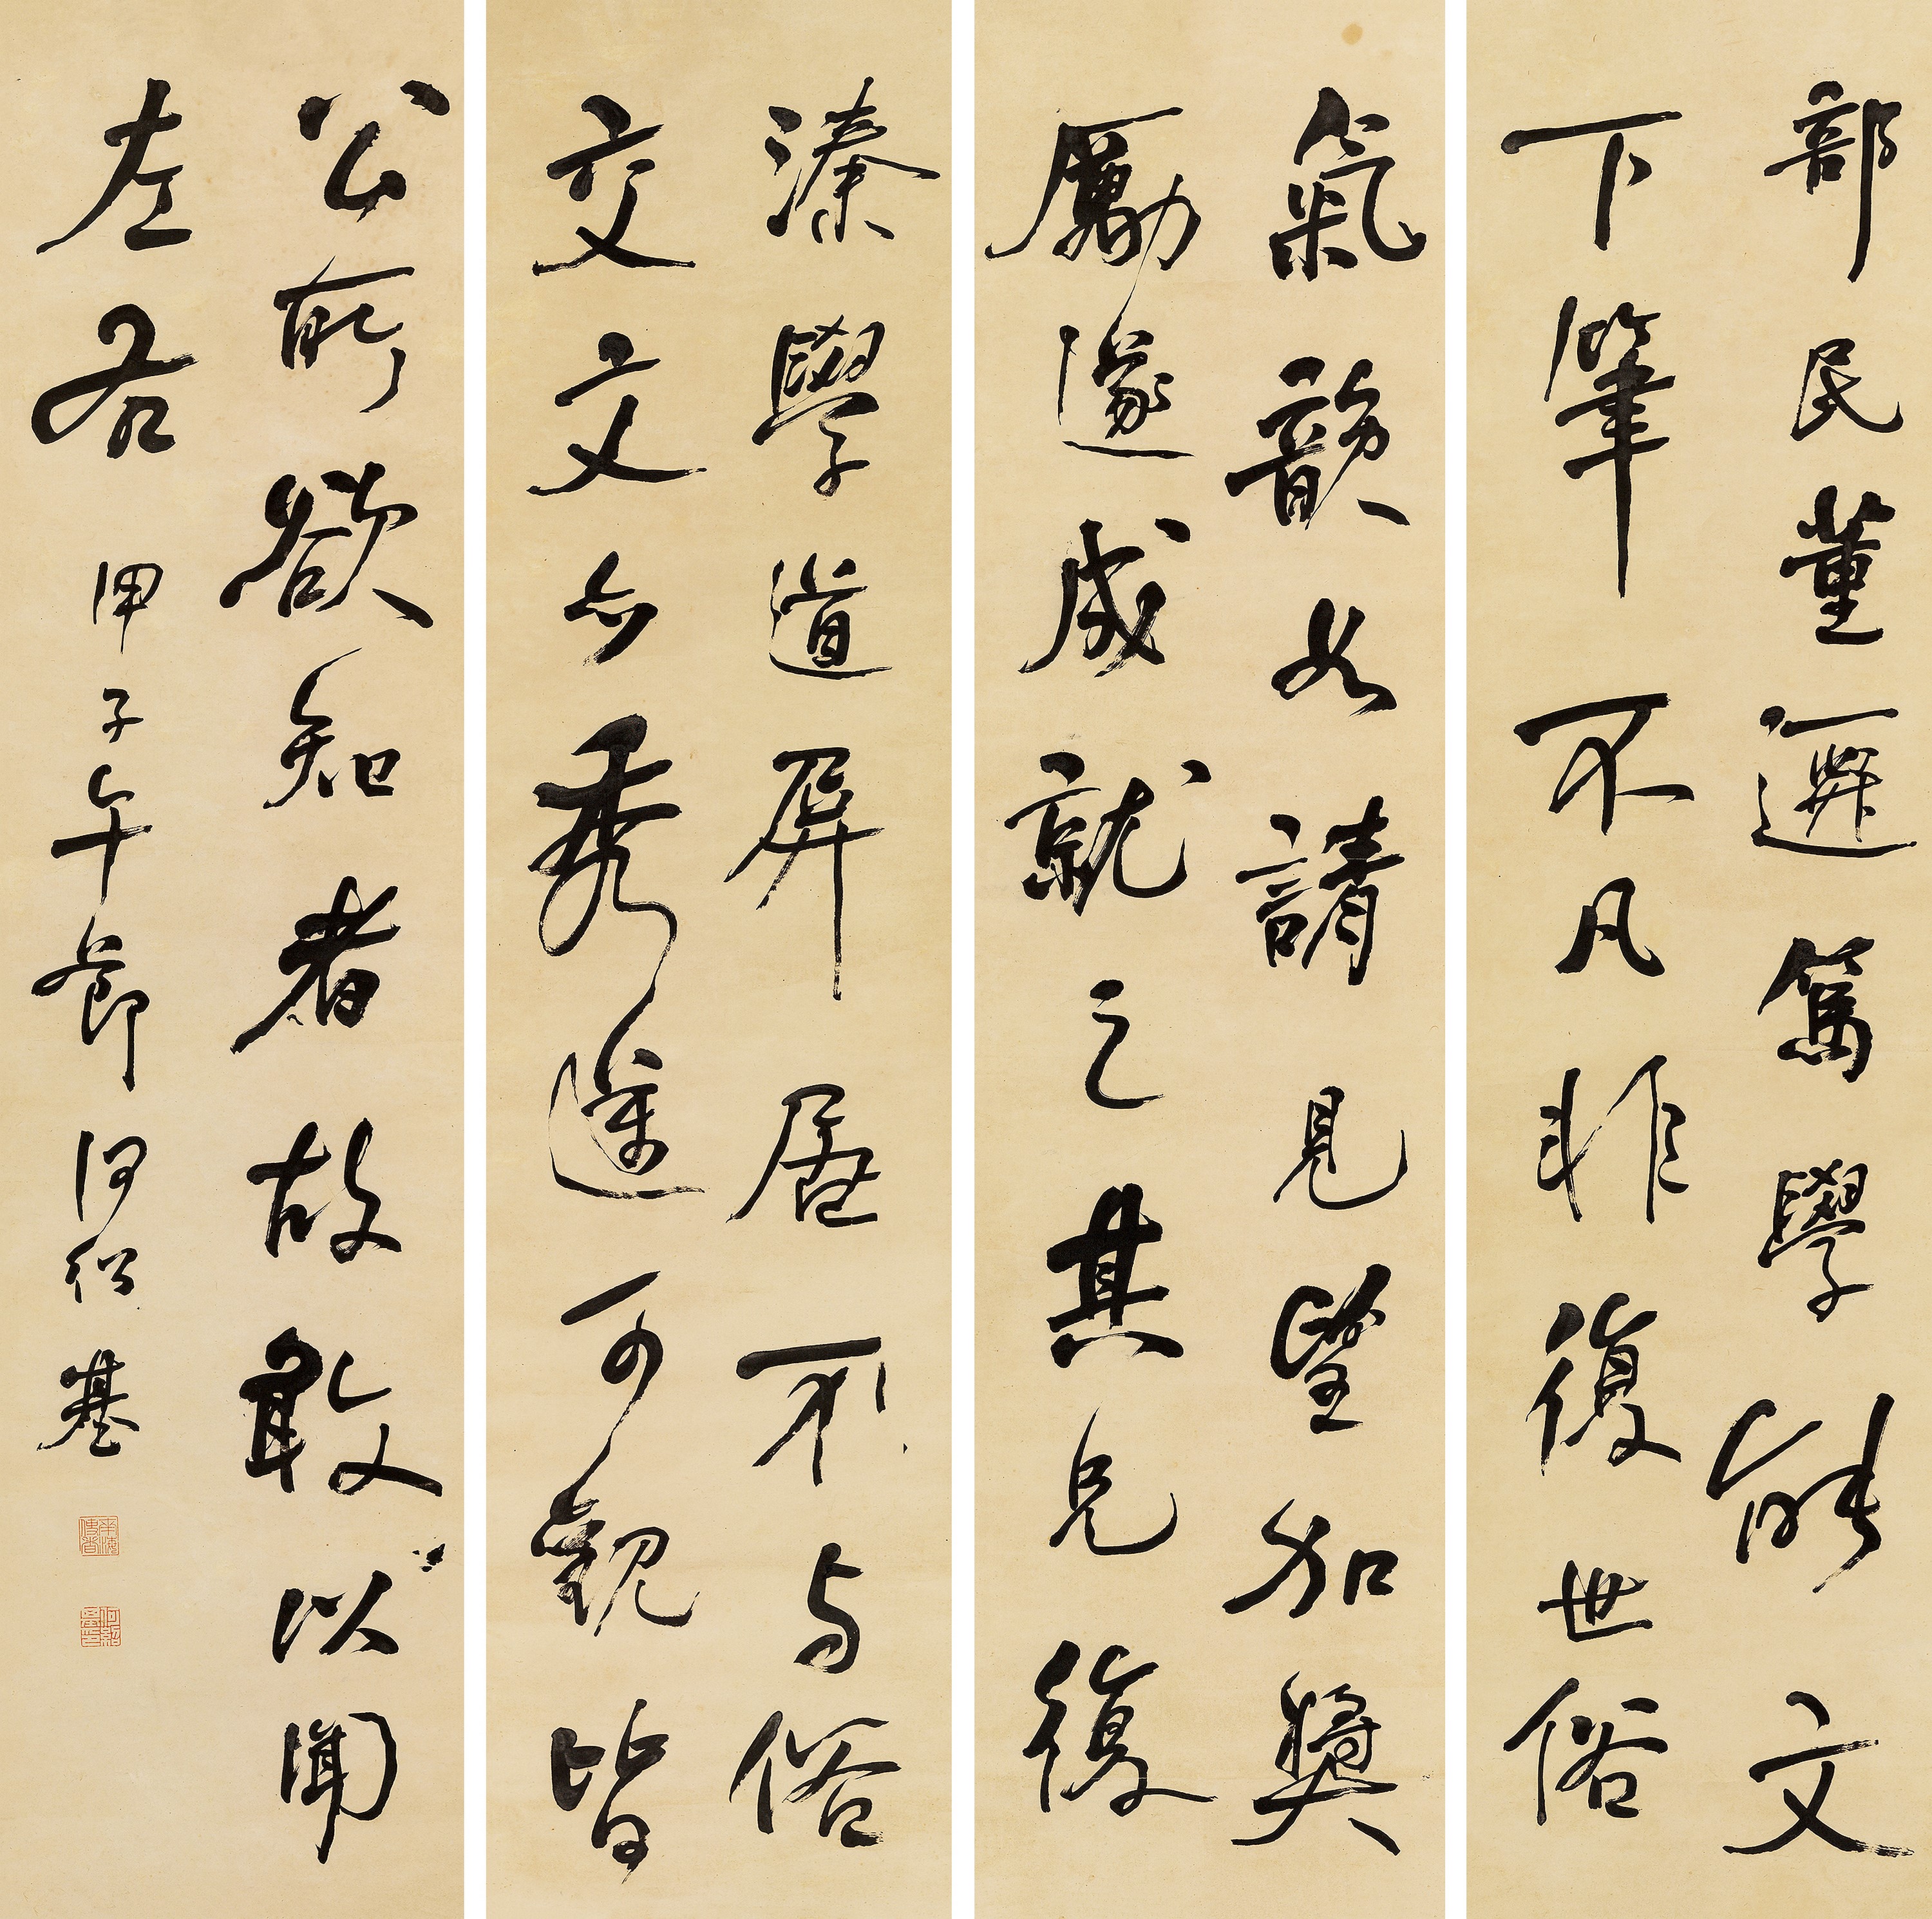 部民董遷篤學能文
下筆不凡非復世俗
氣韻如請見望加獎
勵遂成就之其兄復
溱學道屏居不与俗
交文亦秀邁可觀皆
公所欲知者故敢以聞
左右 甲子午節 何紹基
何紹基印